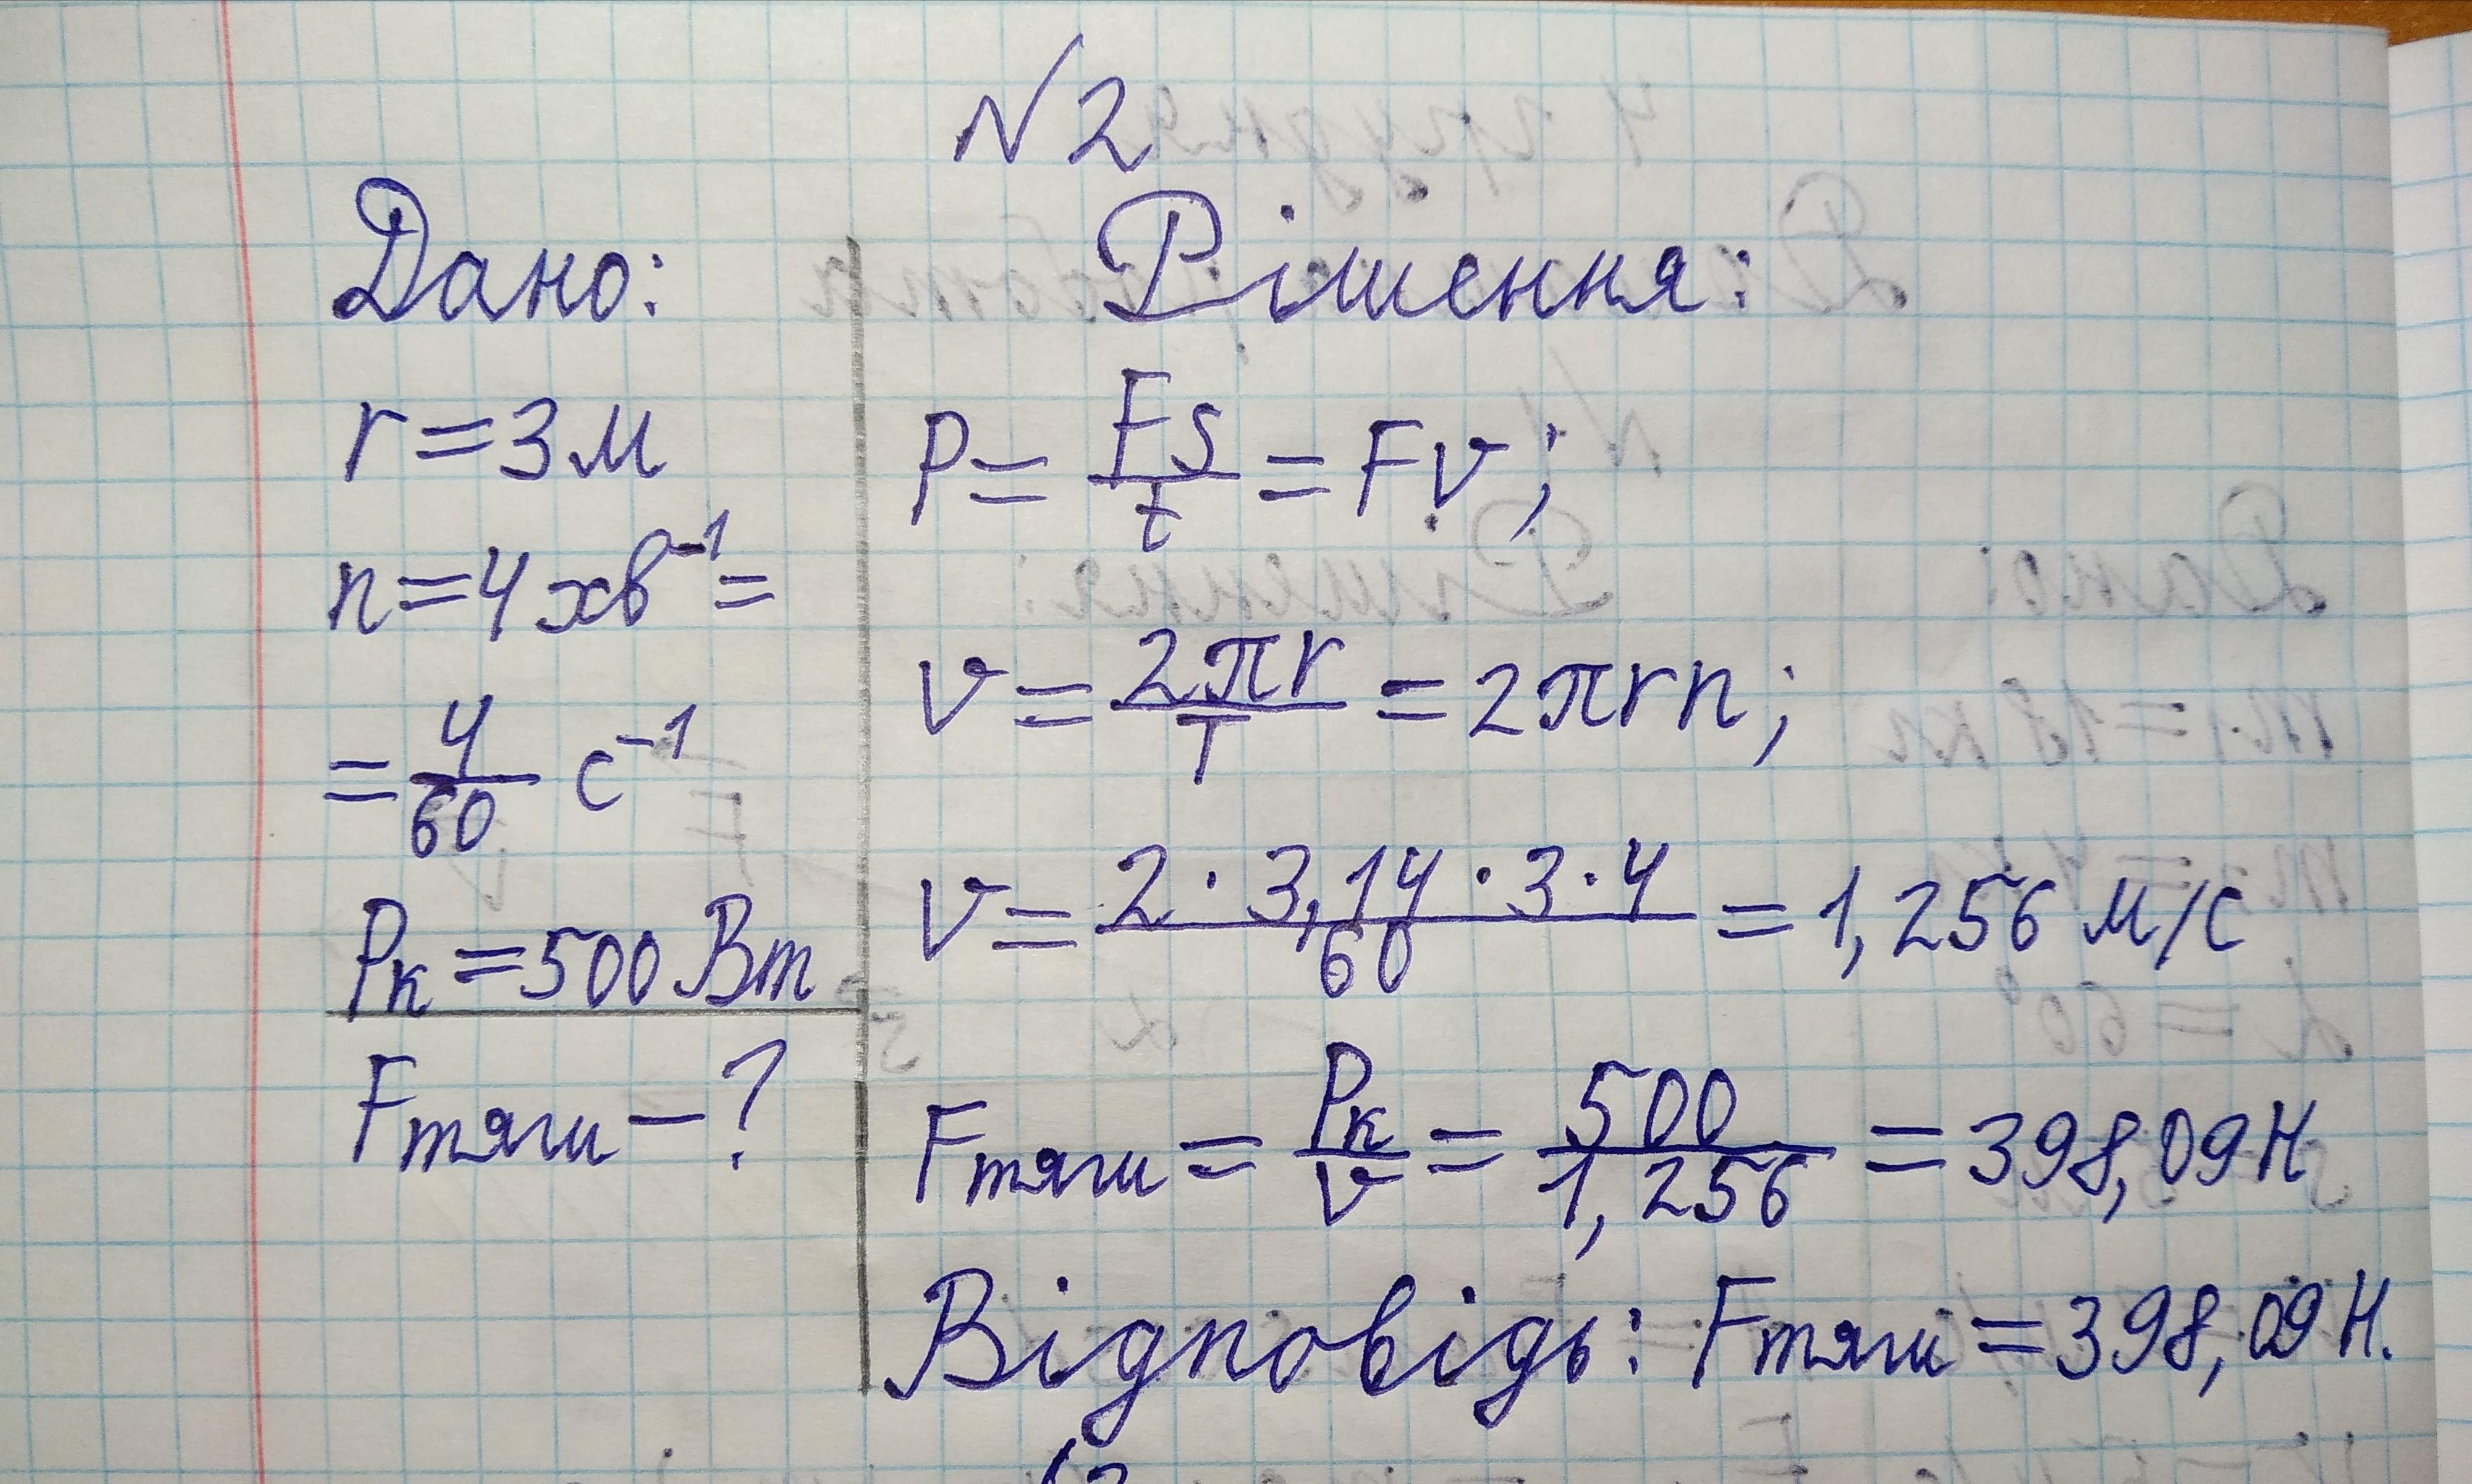 №2
Дано:
r = 3 м
n = 4 хв⁻¹ =
= 4/60 с⁻¹
Pк = 500 Вт
Fтяги – ?
Рішення:
P = Fs/t = Fv;
v = 2πr/T = 2πrn;
v = 2 · 3,14 · 3 · 4/60 = 1,256 м/с
Fтяги = Pк/v = 500/1,256 = 398,09 Н
Відповідь: Fтяги = 398,09 Н.